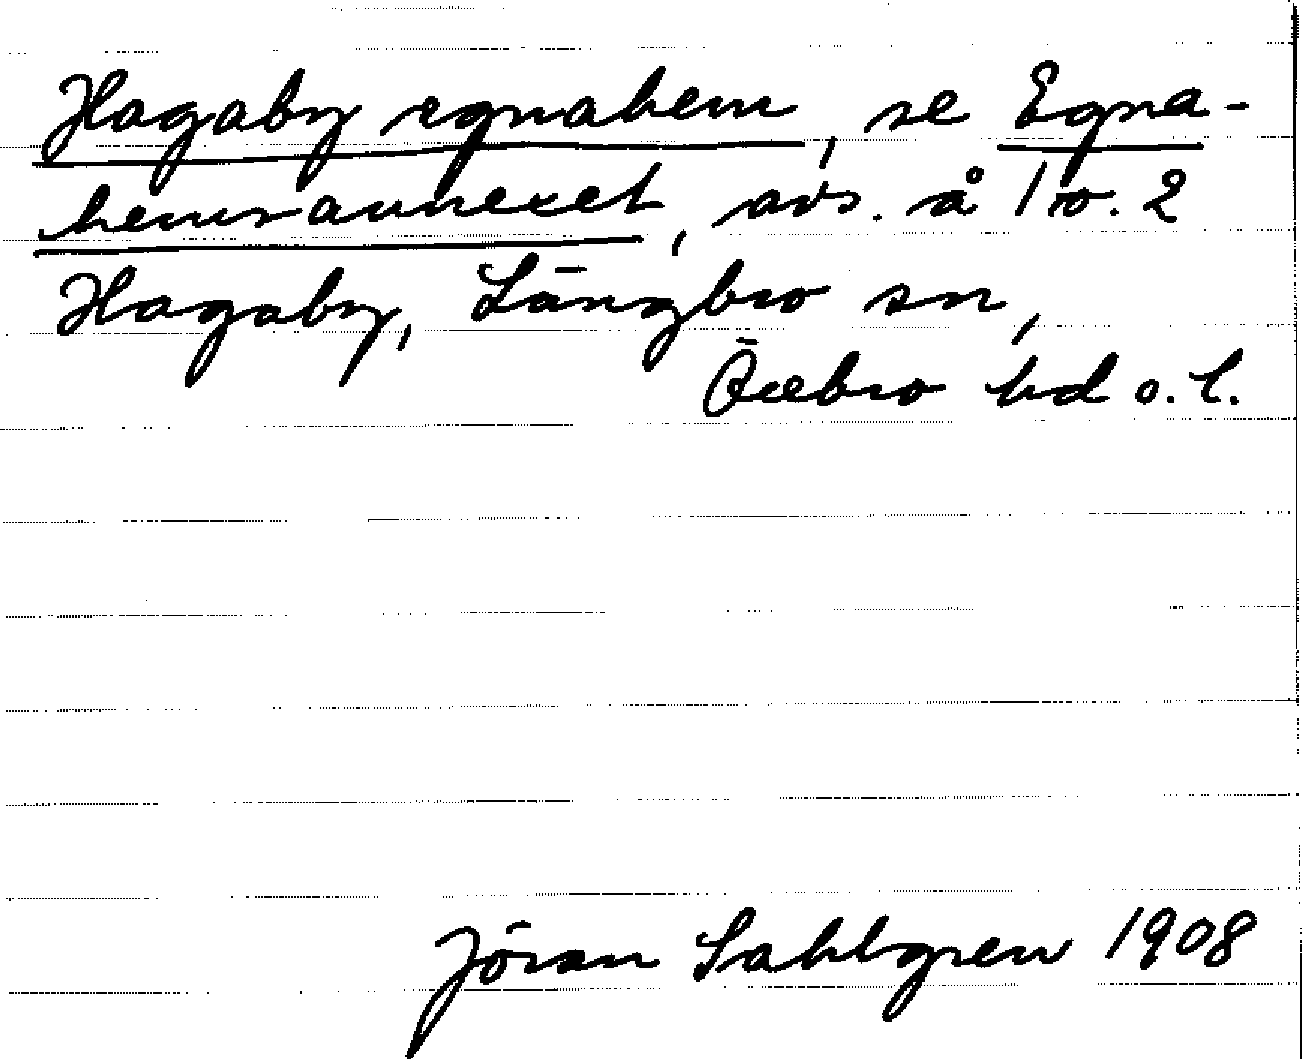 Hagaby egnahem, se Egna-
hemsannexet, avs. å 1 o. 2
Hagaby, Längbro sn,
Örebro hd o. l.
Jöran Sahlgren 1908